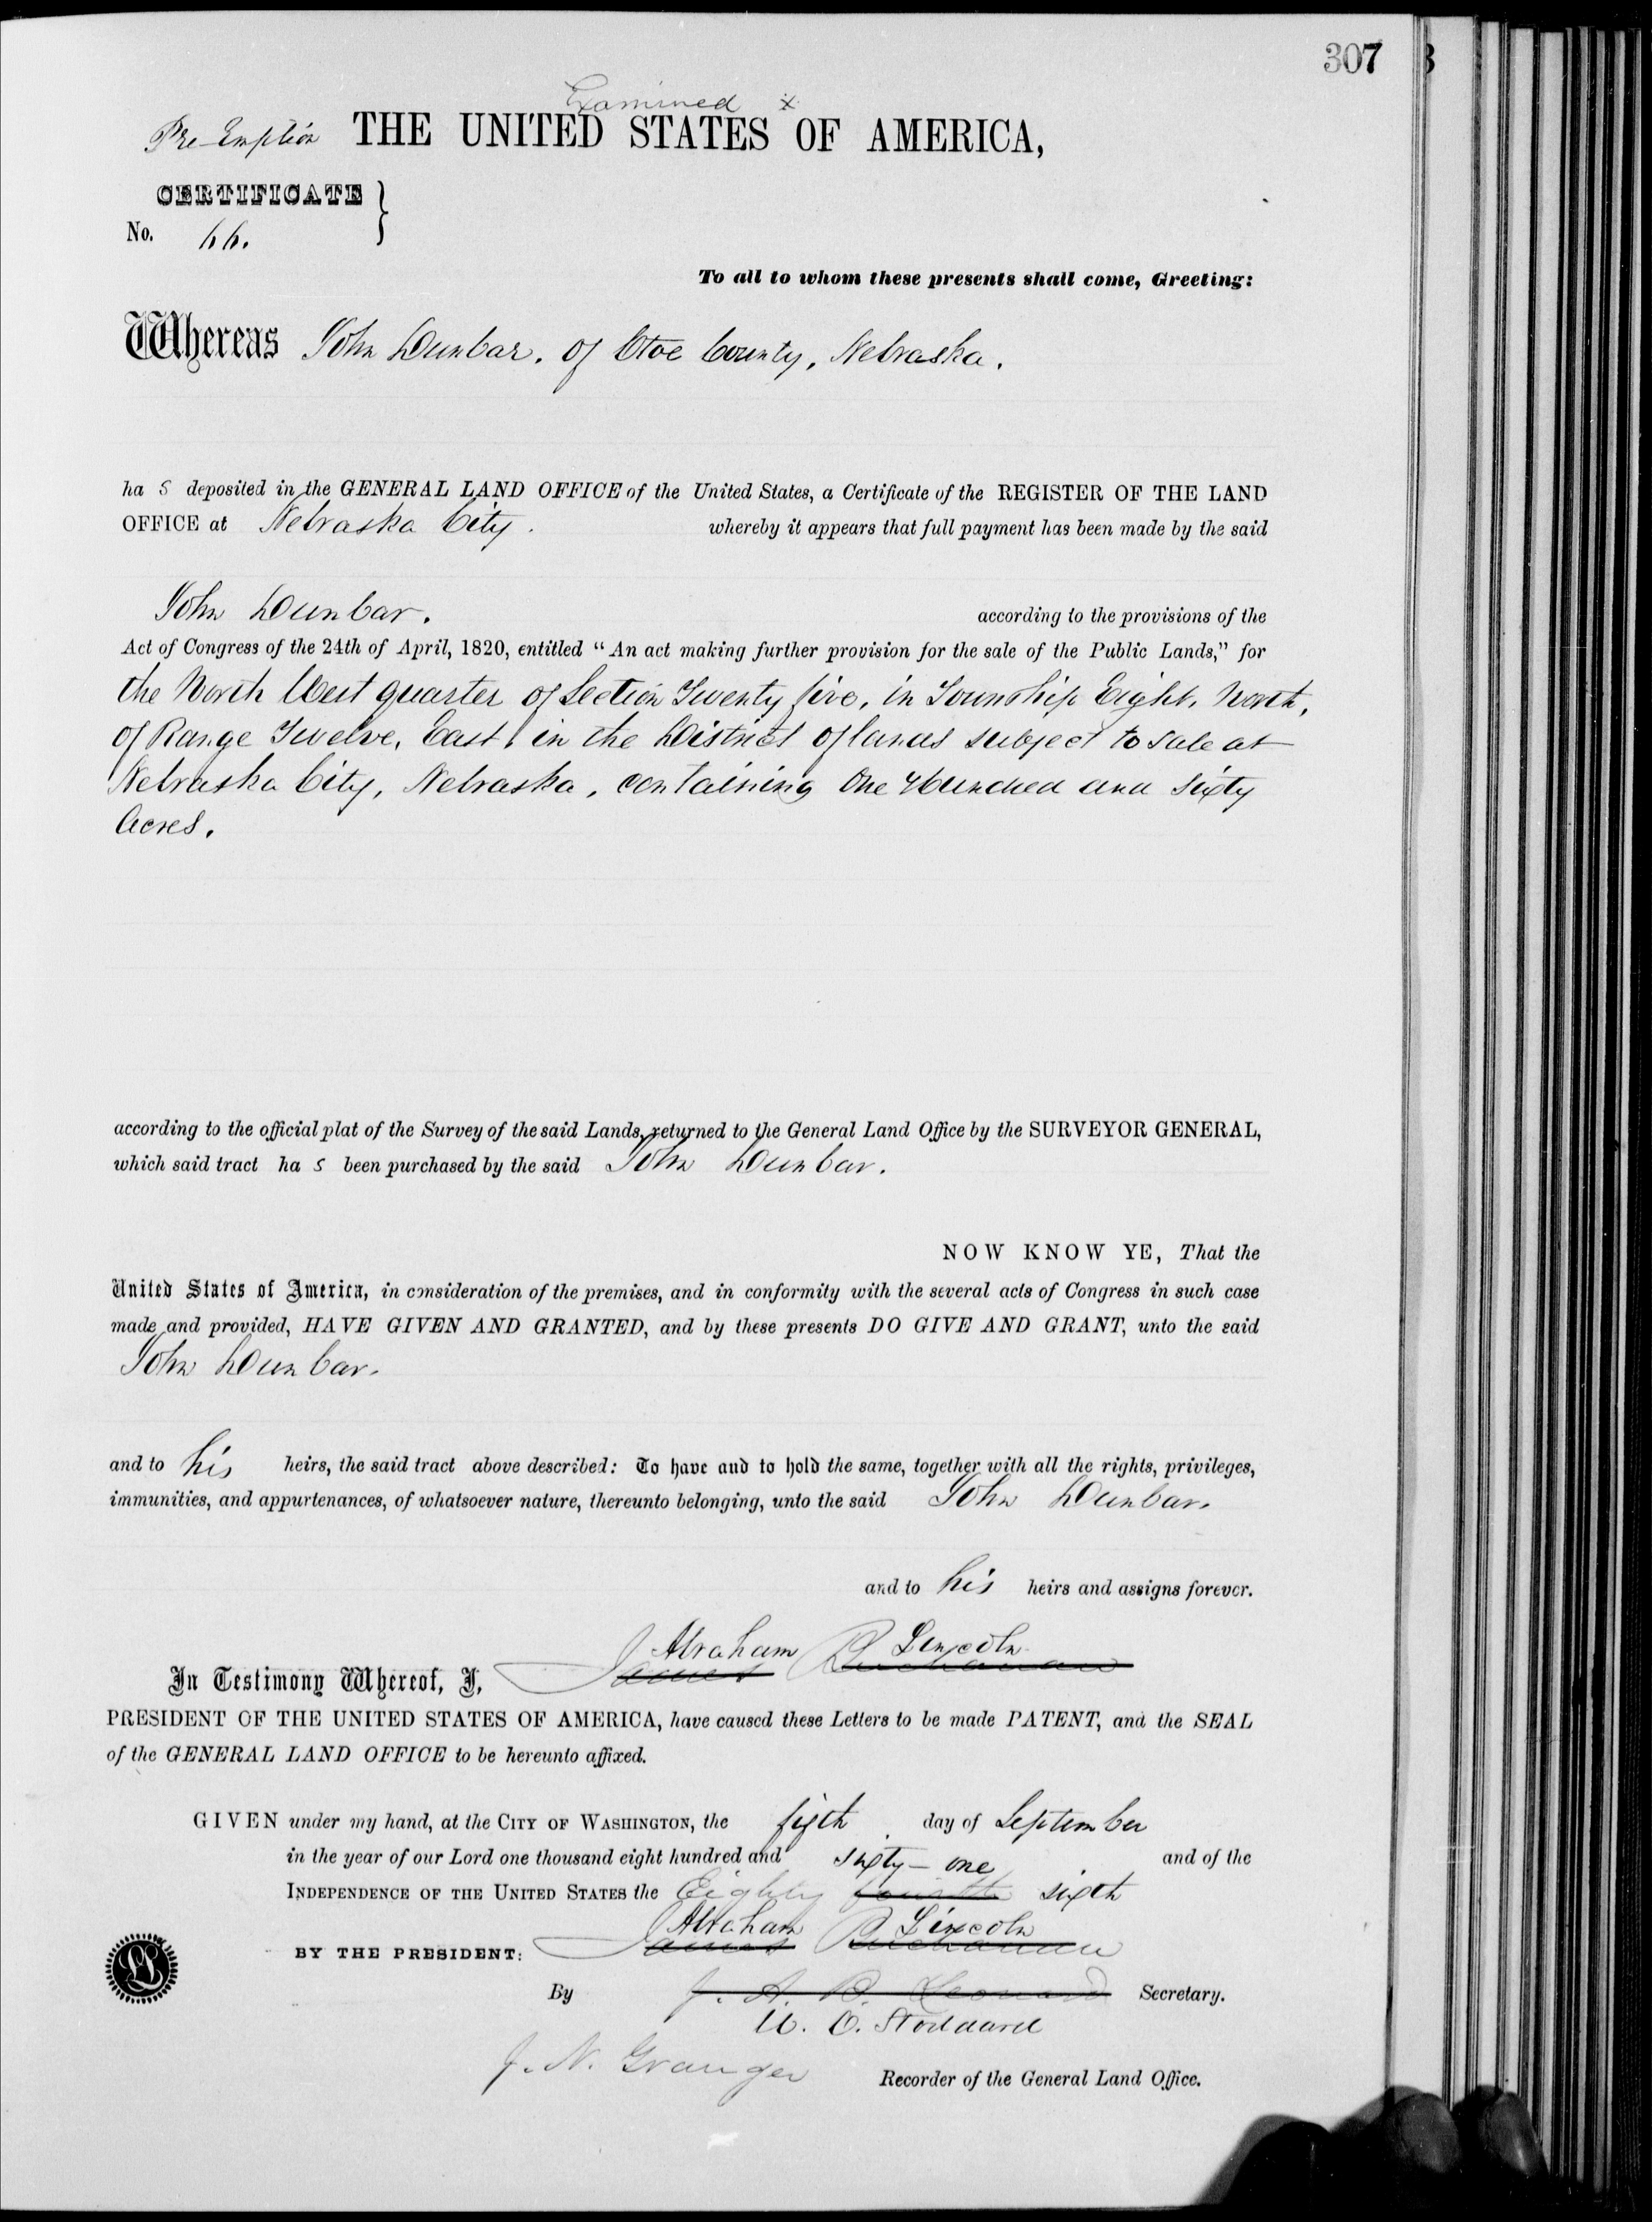 307
Examined x
Pre-Emption THE UNITED STATES OF AMERICA,
CERTIFICATE }
No. 66.
To all to whom these presents shall come, Greeting:
Whereas John Dunbar, of Otoe County, Nebraska.
ha s deposited in the GENERAL LAND OFFICE of the United States, a Certificate of the REGISTER OF THE LAND
OFFICE at Nebraska City. whereby it appears that full payment has been made by the said
John Dunbar. according to the provisions of the
Act of Congress of the 24th of April, 1820, entitled “An act making further provision for the sale of the Public Lands,” for
the North West quarter of Section Twenty five, in Township Eight, North,
of Range Twelve, East, in the District of lands subject to sale at
Nebraska City, Nebraska, containing One Hundred and sixty
Acres.
according to the official plat of the Survey of the said Lands, returned to the General Land Office by the SURVEYOR GENERAL,
which said tract ha s been purchased by the said John Dunbar.
NOW KNOW YE, That the
United States of America, in consideration of the premises, and in conformity with the several acts of Congress in such case
made and provided, HAVE GIVEN AND GRANTED, and by these presents DO GIVE AND GRANT, unto the said
John Dunbar.
and to his heirs, the said tract above described: To have and to hold the same, together with all the rights, privileges,
immunities, and appurtenances, of whatsoever nature, thereunto belonging, unto the said John Dunbar.
and to his heirs and assigns forever.
Abraham Lincoln
In Testimony Whereof, I, James Buchanan
PRESIDENT OF THE UNITED STATES OF AMERICA, have caused these Letters to be made PATENT, and the SEAL
of the GENERAL LAND OFFICE to be hereunto affixed.
GIVEN under my hand, at the CITY OF WASHINGTON, the fifth day of September
in the year of our Lord one thousand eight hundred and sixty-one and of the
INDEPENDENCE OF THE UNITED STATES the Eighty fourth sixth
Abraham Lincoln
BY THE PRESIDENT: James Buchanan
By J. A. B. Leonard Secretary.
W. O. Stoddard
J. N. Granger Recorder of the General Land Office.